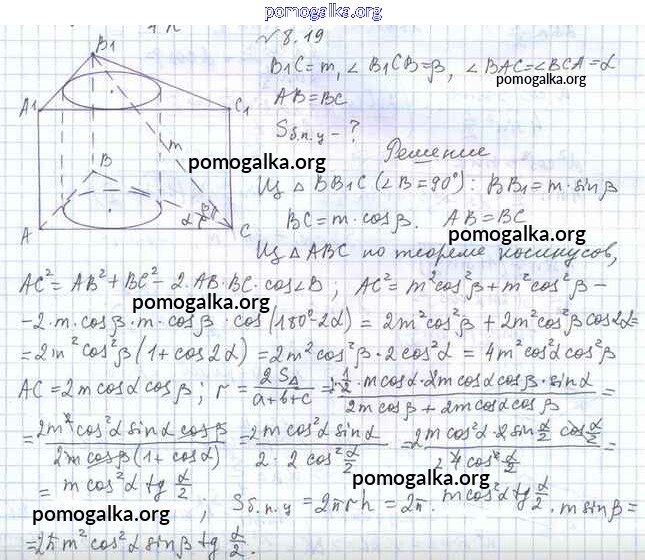 pomogalka.org
№ 8.19
B₁C = m, ∠ B₁CB = β, ∠ BAC = ∠BCA = α
pomogalka.org
AB = BC
Sб.п.ц - ?
Решение
pomogalka.org
Из △ BB₁C (∠B = 90°): BB₁ = m·sinβ
BC = m·cosβ. AB = BC
pomogalka.org
Из △ABC по теореме косинусов,
AC² = AB² + BC² - 2·AB·BC·cos∠B ; AC² = m²cos²β + m²cos²β -
pomogalka.org
- 2·m·cosβ·m·cosβ·cos(180°-2α) = 2m²cos²β + 2m²cos²β cos2α =
= 2m²cos²β(1 + cos2α) = 2m²cos²β·2cos²α = 4m²cos²α cos²β
AC = 2m cosα cosβ ; r = 2S△/(a+b+c) = 2·½·m cosα·2m cosα cosβ·sinα / (2m cosβ + 2m cosα cosβ) =
= 2m² cos²α sinα cosβ / (2m cosβ (1 + cosα)) = 2m cos²α sinα / (2·2cos² α/2) = 2m cos²α·2sin α/2 cos α/2 / (4cos² α/2) =
pomogalka.org
= m cos²α tg α/2 ; Sб.п.ц = 2πrh = 2π·m cos²α tg α/2·m sinβ =
pomogalka.org
pomogalka.org
= 2πm²cos²α sinβ tg α/2.
B₁
A₁
C₁
m
B
α
β
A
C